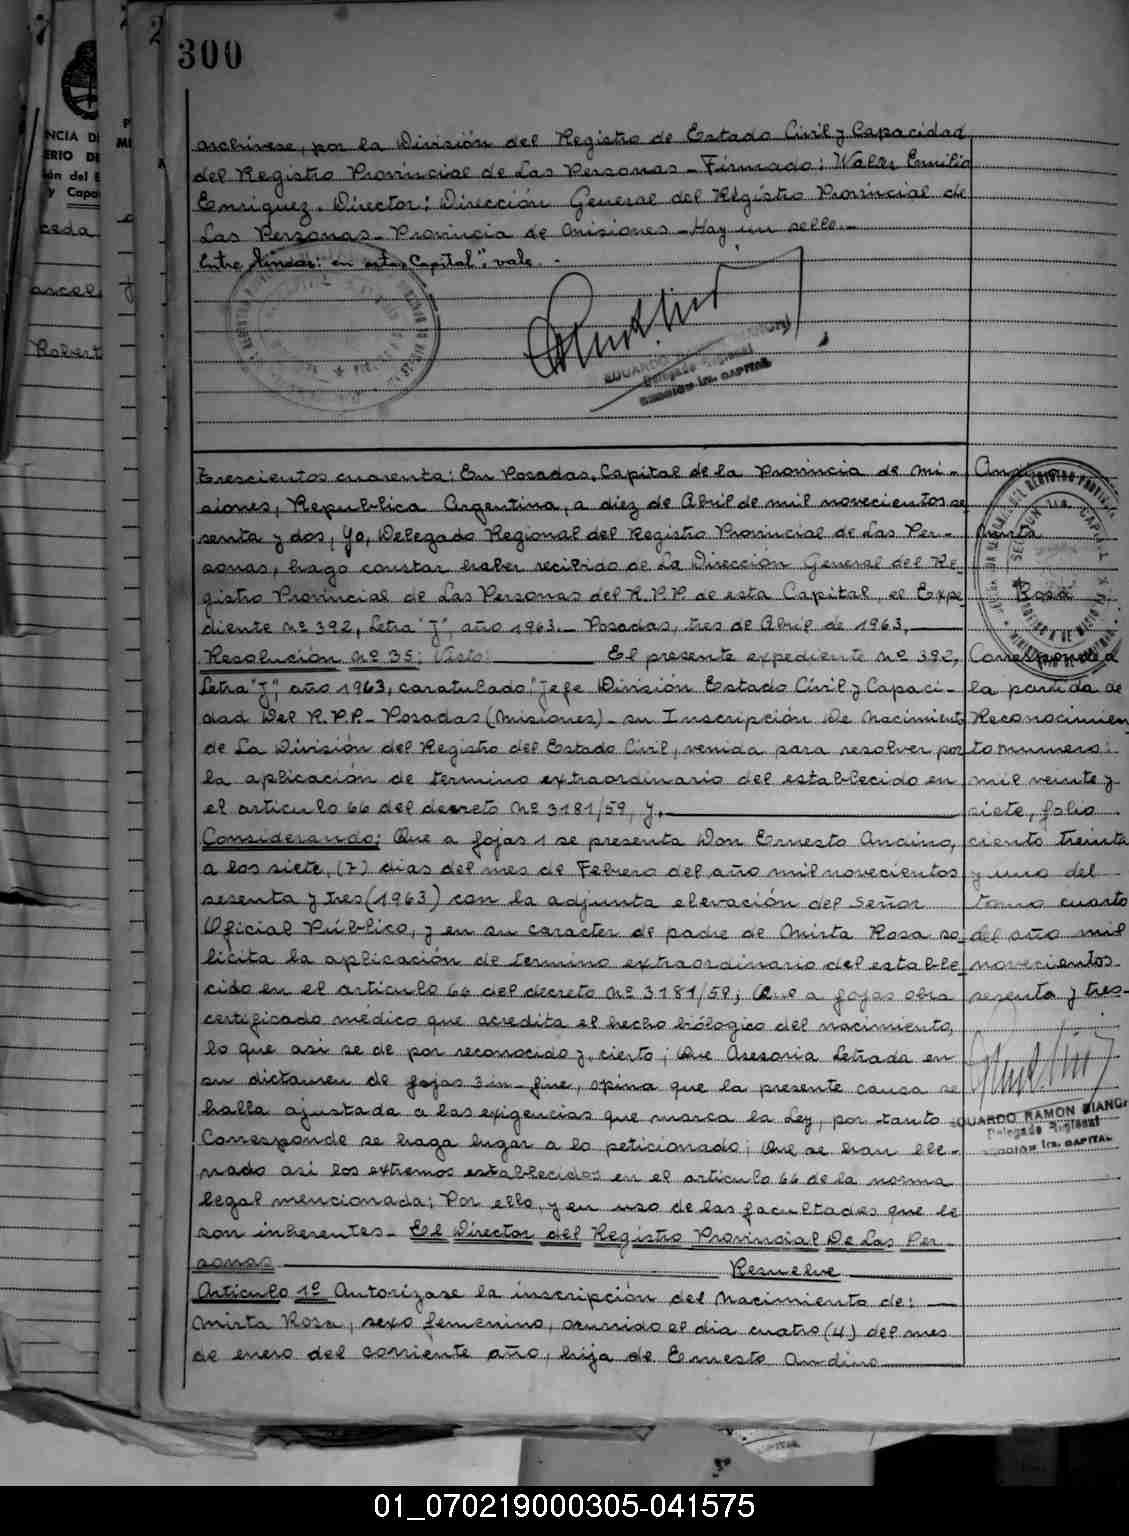 300
archívese, por la División del Registro de Estado Civil y Capacidad
del Registro Provincial de Las Personas - Firmado: Walter Emilio
Enriguez. Director: Dirección General del Régistro Provincial de
Las Personas - Provincia de Misiones - Hay un sello.-
Entre lineas: en esta, Capital": vale.-
EDUARDO RAMON
Delegado Regional
SECCION 1ra. CAPITAL
Trescientos cuarenta: En Posadas, Capital de la Provincia de Mi-
siones, Republica Argentina, a diez de Abril de mil novecientos se
senta y dos, Yo, Delegado Regional del Registro Provincial de Las Per-
sonas, hago constar haber recibido de La Dirección General del Re-
gistro Provincial de Las Personas del R.P.P. de esta Capital, el Expe-
diente Nº 392, Letra "J", año 1963.- Posadas, tres de Abril de 1963,
Resolución Nº 35: Visto: El presente expediente Nº 392,
Letra "J", año 1963, caratulado: "Jefe División Estado Civil y Capaci-
dad Del R.P.P.- Posadas (Misiones) - su Inscripción De Nacimiento
de La División del Registro del Estado Civil, venida para resolver por
la aplicación de termino extraordinario del establecido en
el articulo 66 del decreto Nº 3181/59, y,
Considerando: Que a fojas 1 se presenta Don Ernesto Andino,
a los siete, (7) dias del mes de Febrero del año mil novecientos
sesenta y tres (1963) con la adjunta elevación del señor
Oficial Público, y en su caracter de padre de Mirta Rosa so-
licita la aplicación de termino extraordinario del estable-
cido en el articulo 66 del decreto Nº 3181/59; Que a fojas obra
certificado médico que acredita el hecho biólogico del nacimiento,
lo que asi se de por reconocido y, cierto; Que Asesoria Letrada en
su dictamen de fojas 3 in-fine, opina que la presente causa se
halla ajustada a las exigencias que marca la Ley, por tanto
Corresponde se haga lugar a lo peticionado; Que se han lle-
nado asi los extremos establecidos en el articulo 66 de la norma
legal mencionada; Por ello, y en uso de las facultades que le
son inherentes - El Director del Registro Provincial De Las Per-
sonas Resuelve
Artículo 1º Autorízase la inscripción del Nacimiento de:
Mirta Rosa, sexo femenino, ocurrido el dia cuatro (4) del mes
de enero del corriente año, hija de Ernesto Andino
Mirta
Rosa
Corresponde a
la partida de
Reconocimien
to numero:
mil veinte y
siete, folio
ciento treinta
y uno del
tomo cuarto
del año mil
novecientos
sesenta y tres-
EDUARDO RAMON BIANG
Delegado Regional
SECCION 1ra. CAPITAL
01_070219000305-041575